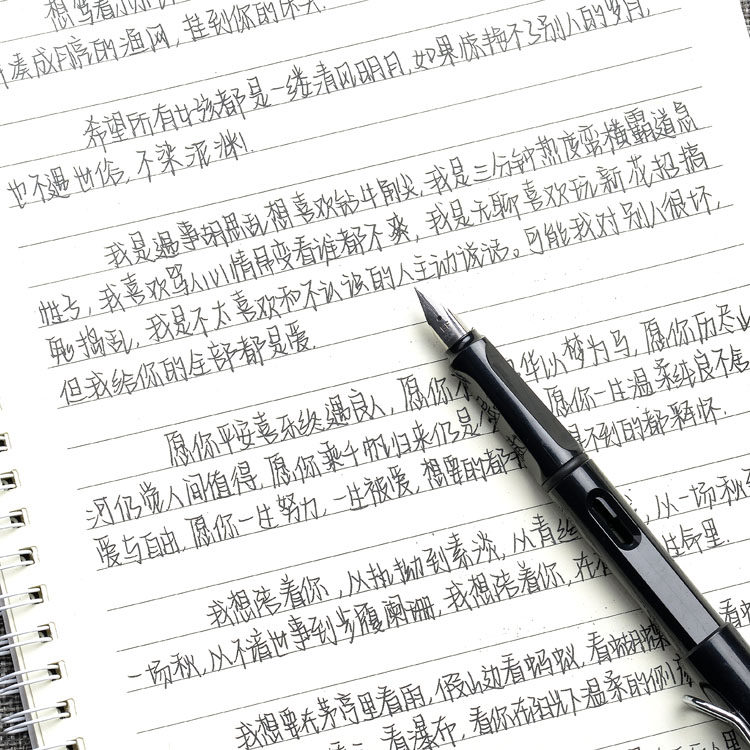 想
凑成月亮的渔网,挂到你的床头.
希望所有女孩都是一缕清风明月,如果惊艳不了别人的岁月,
也不遇世俗,不染泥渊!
我是遇事胡思乱想喜欢钻牛角尖,我是三分钟热度蛮横霸道急
性子,我喜欢骂人心情易变看谁都不爽,我是无聊喜欢玩新花招搞
鬼捣乱,我是不太喜欢和不认识的人主动说话。可能我对别人很坏,
但我给你的全部都是爱
愿你平安喜乐终遇良人,愿你不 华以梦为马,愿你历尽山
河仍觉人间值得,愿你乘千帆归来仍是 愿你一生温柔纯良不舍
爱与自由,愿你一生努力,一生被爱,想要的都 得不到的都释怀.
我想陪着你,从热拗到素淡,从青丝 ,从一场秋到
一场秋,从不谙世事到步履阑珊,我想陪着你,在 生命里.
我想要在茅亭里看雨,假山边看蚂蚁,看蝴蝶 看
看瀑布,看你在阳光下温柔的侧